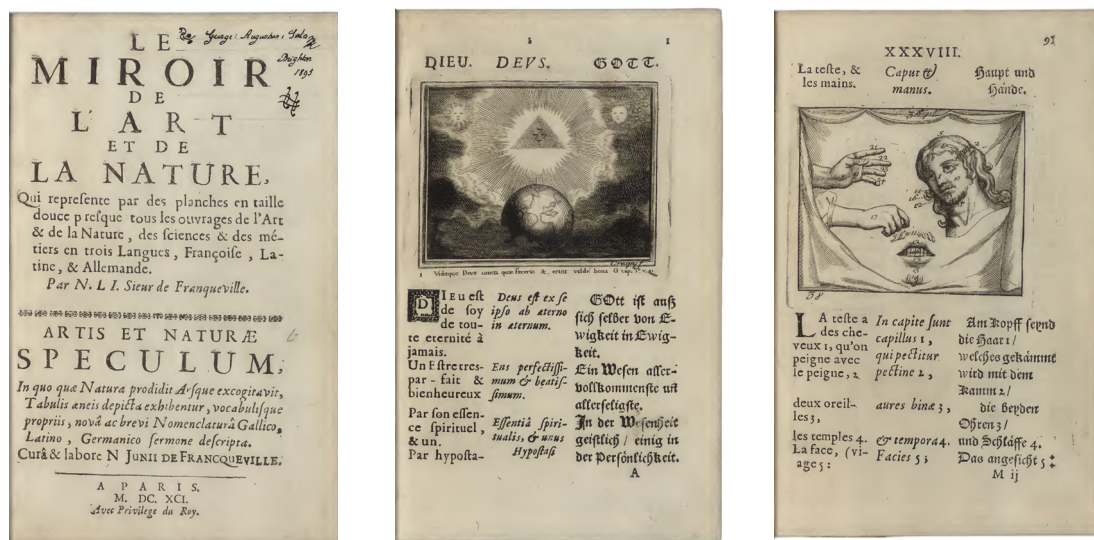 LE
George: Augustus: Sala
MIROIR
Brighton
1895
DE
L'ART
ET DE
LA NATURE,
Qui represente par des planches en taille
douce presque tous les ouvrages de l'Art
& de la Nature, des sciences & des mé-
tiers en trois Langues, Françoise, La-
tine, & Allemande.
Par N. L I. Sieur de Franqueville.
ARTIS ET NATURÆ
SPECULUM,
In quo quæ Natura prodidit Arsque excogitavit,
Tabulis æneis depicta exhibentur, vocabulisque
propriis, novâ ac brevi Nomenclaturâ Gallico,
Latino, Germanico sermone descripta.
Curâ & labore N JUNII DE FRANCQUEVILLE.
A PARIS.
M. DC. XCI.
Avec Privilege du Roy.
1
DIEU. DEVS. GOTT.
1 Viditque Deus cuncta quæ fecerat & erant valdè bona
DIEU est
de soy
de tou-
te eternité à
jamais.
Un Estre tres-
par-fait &
bienheureux
Par son essen-
ce spirituel,
& un.
Par hyposta-
Deus est ex se
ipso ab æterno
in æternum.
Ens perfectissi-
mum & beatis-
simum.
Essentiâ spiri-
tualis, & unus
Hypostasi
GOtt ist auß
sich selber von E-
wigkeit in Ewig-
keit.
Ein Wesen aller-
vollkommenste uñ
allerseligste.
In der Wesenheit
geistlich / einig in
der Persönlichkeit.
A
91
XXXVIII.
La teste, &
les mains.
Caput &
manus.
Haupt und
Hände.
38
LA teste a
des che-
veux 1, qu'on
peigne avec
le peigne, 2
deux oreil-
les 3,
les temples 4.
La face, (vi-
age 5:
In capite sunt
capillus 1,
qui pectitur
pectine 2,
aures binæ 3,
& tempora 4.
Facies 5;
Am Kopff seynd
die Haar 1/
welches gekämmt
wird mit dem
Kamm 2/
die beyden
Ohren 3/
und Schläffe 4.
Das angesicht 5:
M ij